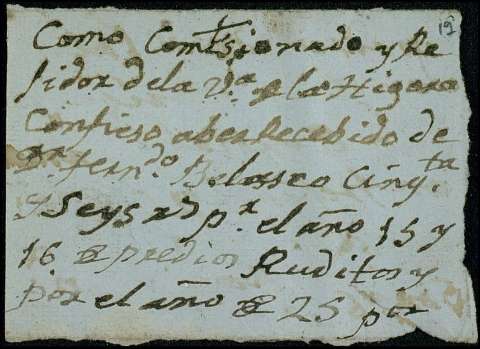 19
Como Comisionado y Re
sidor dela v.a de la Higera
Confieso aber Recebido de
Dn fern.do Belasco Cinq.ta
y Seys rs p.r el año 15 y
16 de predios Ruditos y
por el año de 25 por